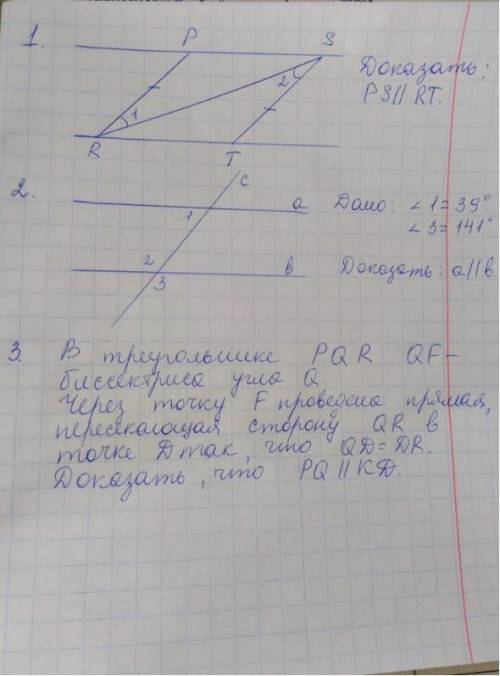 1.
P S
1 2
R T
Доказать:
PS // RT.
2.
c
a
1
2
3
b
Дано: ∠1=39°
∠3=141°
Доказать: a//b.
3. В треугольнике PQR QF-
биссектриса угла Q.
Через точку F проведена прямая,
пересекающая сторону QR в
точке D так, что QD=DR.
Доказать, что PQ // KD.